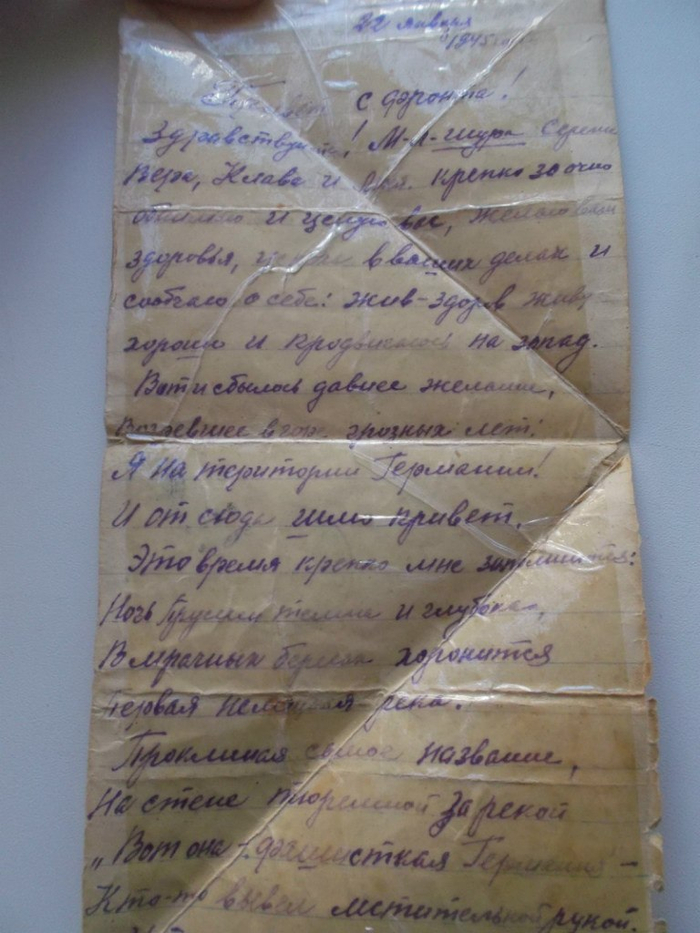 22 января
1945 года
Привет с фронта!
Здравствуйте! М-Л-Шура Сережа
Вера, Клава и Аня. Крепко заочно
обнимаю и целую вас, желаю вам
здоровья, успеха в ваших делах и
сообчаю о себе: жив-здоров живу
хорошо и продвигаюсь на запад.
Вот и сбылось давнее желание,
Созревшее в горе грозных лет:
Я на територии Германии!
И от сюда шлю привет.
Это время крепко мне запомнится:
Ночь Пруссии темна и глубока,
В мрачных берегах хоронится
Первая немецкая река.
Проклиная самое название,
На стене тюремной за рекой
„Вот она - фашисткая Германия -
Кто-то вывел мстительной рукой.